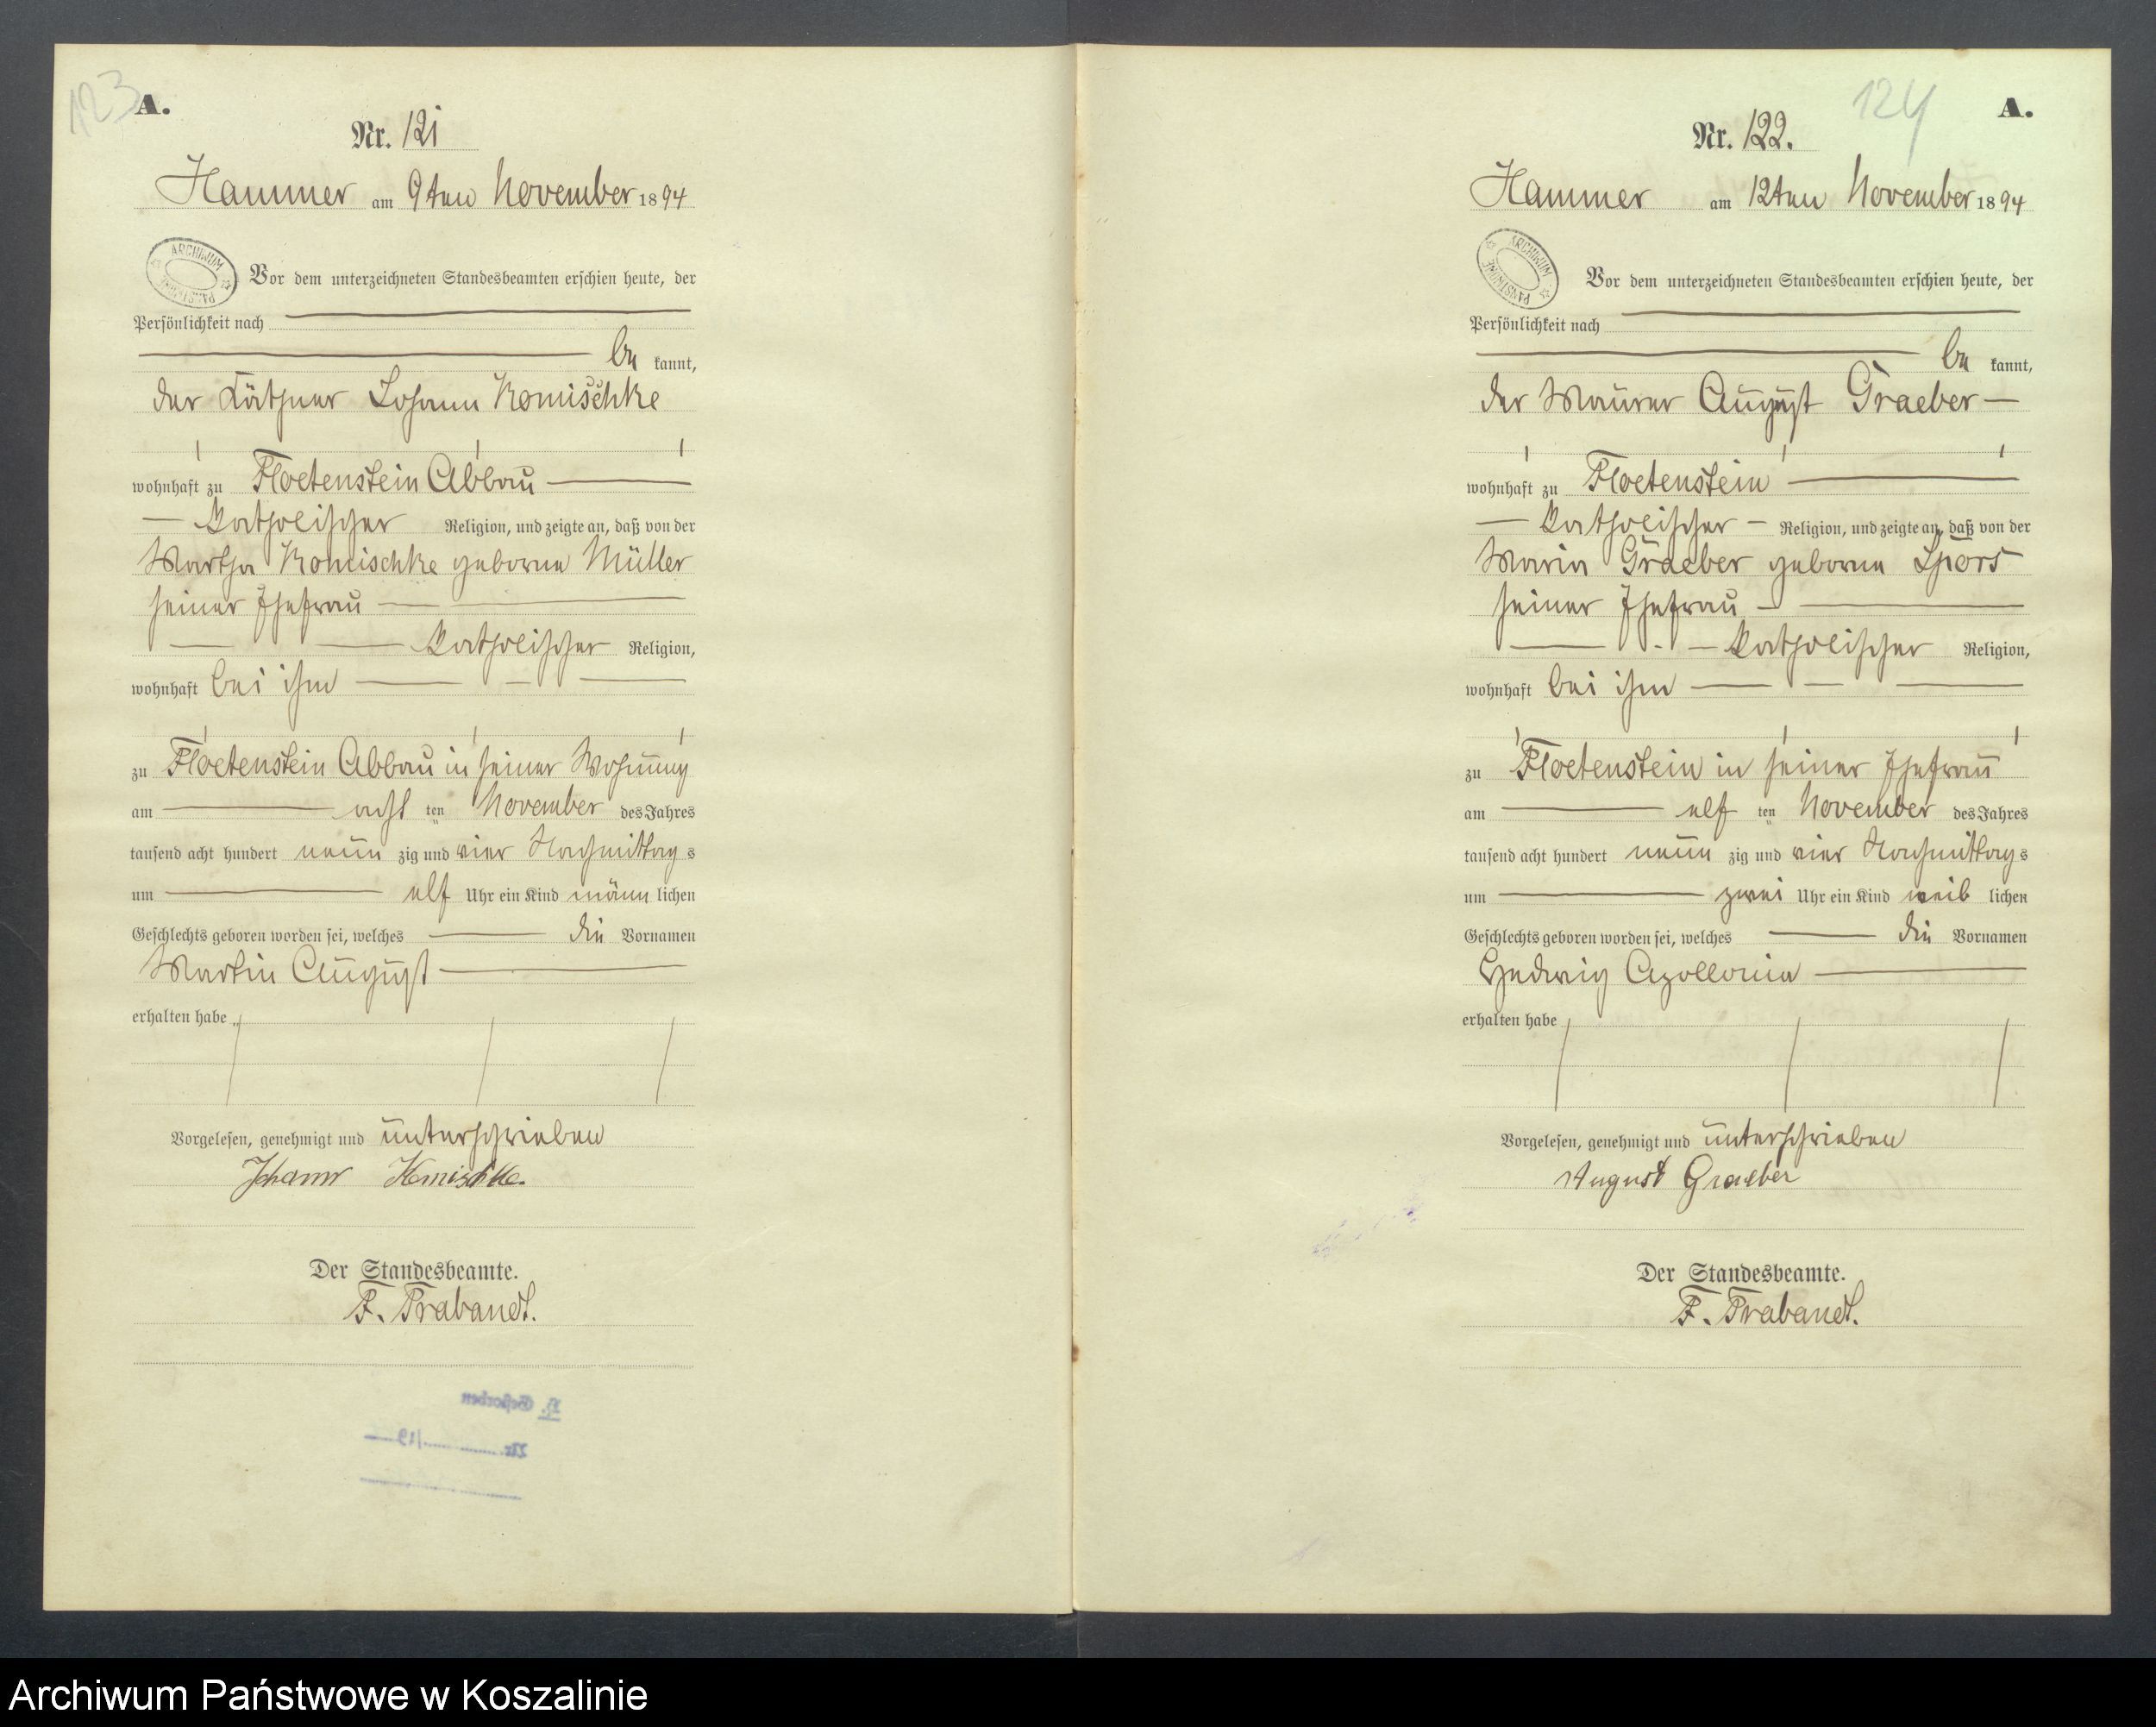 123
A.
Nr. 121
Hammer am 9ten November 1894
ARCHIWUM PAŃSTWOWE
Vor dem unterzeichneten Standesbeamten erschien heute, der
Persönlichkeit nach
be kannt,
der Käthner Johann Komischke
wohnhaft zu Floetenstein Abbau
katholischer Religion, und zeigte an, daß von der
Martha Komischke geborne Müller
seiner Ehefrau
katholischer Religion,
wohnhaft bei ihm
zu Floetenstein Abbau in seiner Wohnung
am acht ten November des Jahres
tausend acht hundert neun zig und vier Nachmittag s
um elf Uhr ein Kind männ lichen
Geschlechts geboren worden sei, welches die Vornamen
Martin August
erhalten habe
Vorgelesen, genehmigt und unterschrieben
Johann Komischke.
Der Standesbeamte.
F. Trabandt.
H. Gestorben
Nr. /19
124
A.
Nr. 122.
Hammer am 12ten November 1894
ARCHIWUM PAŃSTWOWE
Vor dem unterzeichneten Standesbeamten erschien heute, der
Persönlichkeit nach
be kannt,
der Maurer August Graeber
wohnhaft zu Floetenstein
katholischer Religion, und zeigte an, daß von der
Maria Graeber geborne Spors
seiner Ehefrau
katholischer Religion,
wohnhaft bei ihm
zu Floetenstein in seiner Ehefrau
am elf ten November des Jahres
tausend acht hundert neun zig und vier Nachmittag s
um zwei Uhr ein Kind weib lichen
Geschlechts geboren worden sei, welches die Vornamen
Hedwig Apollonia
erhalten habe
Vorgelesen, genehmigt und unterschrieben
August Graeber
Der Standesbeamte.
F. Trabandt.
Archiwum Państwowe w Koszalinie